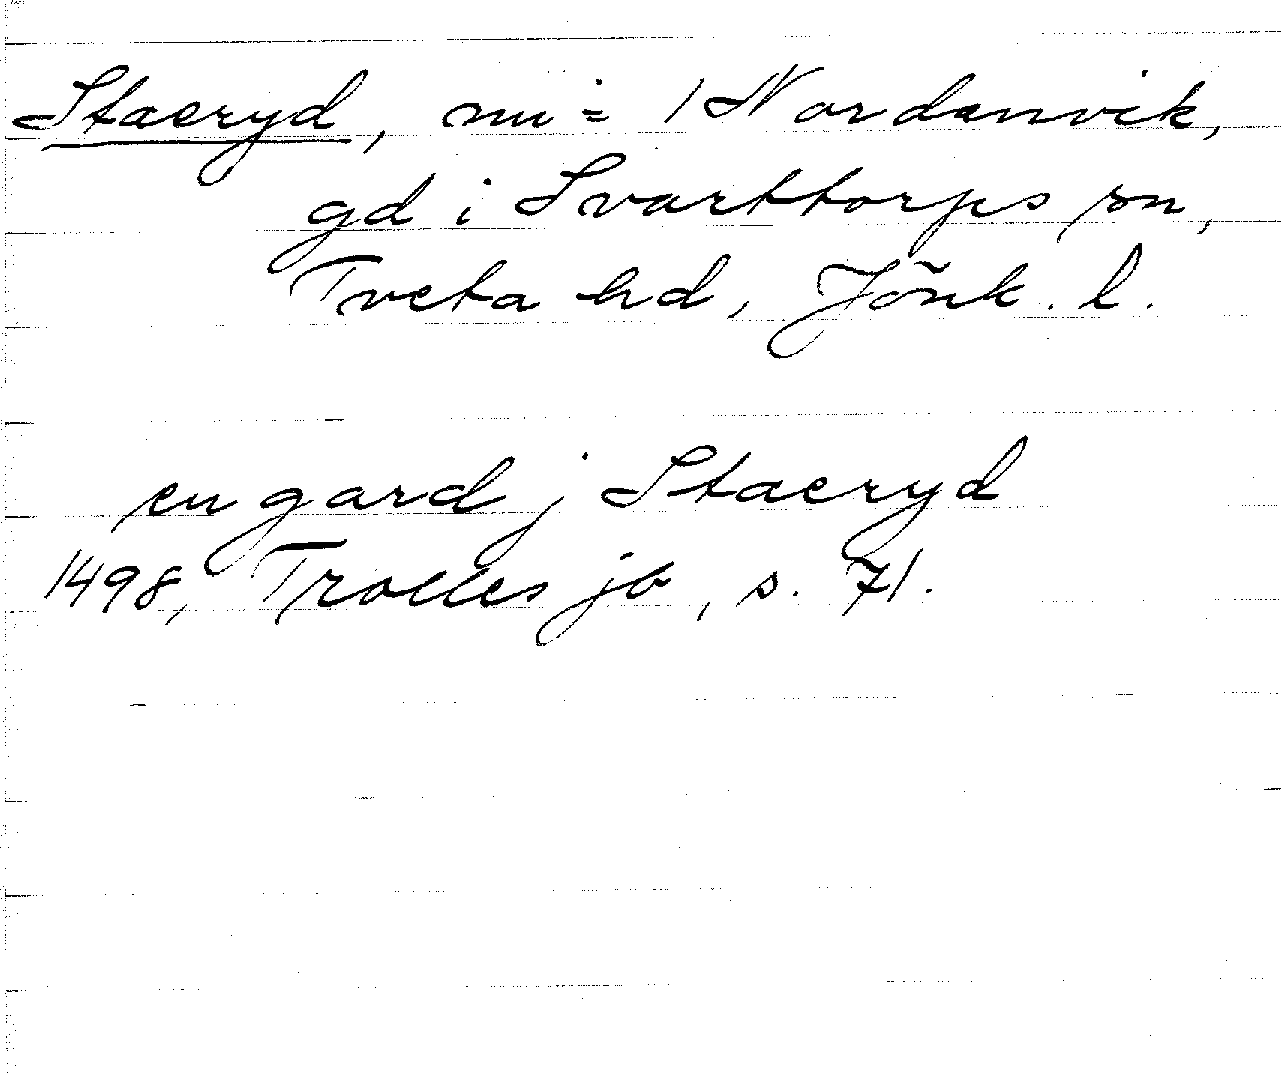 Staeryd, nu = 1 Nordanvik,
gd i Svarttorps sn,
Tveta hd, Jönk. l.
en gard j Staeryd
1498, Trolles jb, s. 71.